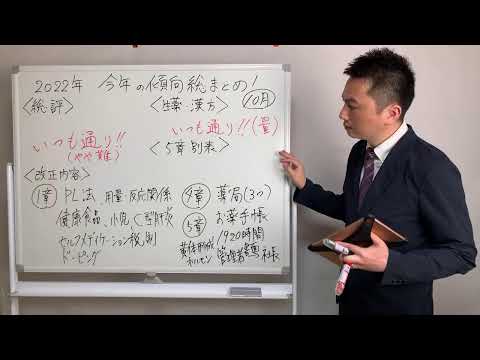 2022年 今年の傾向総まとめ!
<総評>
いつも通り!!
(やや難)
<生薬・漢方> 10月
いつも通り!!(量)
<5章 別表>
<改正内容>
1章 PL法、用量-反応関係
健康食品、小児、C型肝炎
セルフメディケーション税制
ドーピング
4章 薬局(3つ)
5章 お薬手帳
黄体形成ホルモン
1920時間
管理者 社長